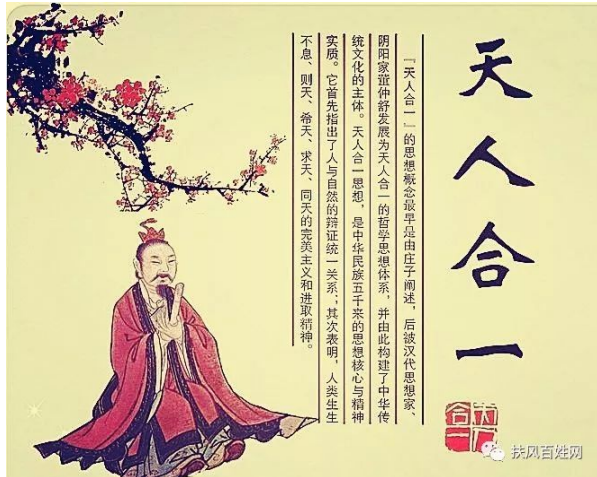 天人合一
『天人合一』的思想概念最早是由庄子阐述，后被汉代思想家、
阴阳家董仲舒发展为天人合一的哲学思想体系，并由此构建了中华传
统文化的主体。天人合一思想，是中华民族五千来的思想核心与精神
实质。它首先指出了人与自然的辩证统一关系；其次表明，人类生生
不息、则天、希天、求天、同天的完美主义和进取精神。
天人
合一
扶风百姓网